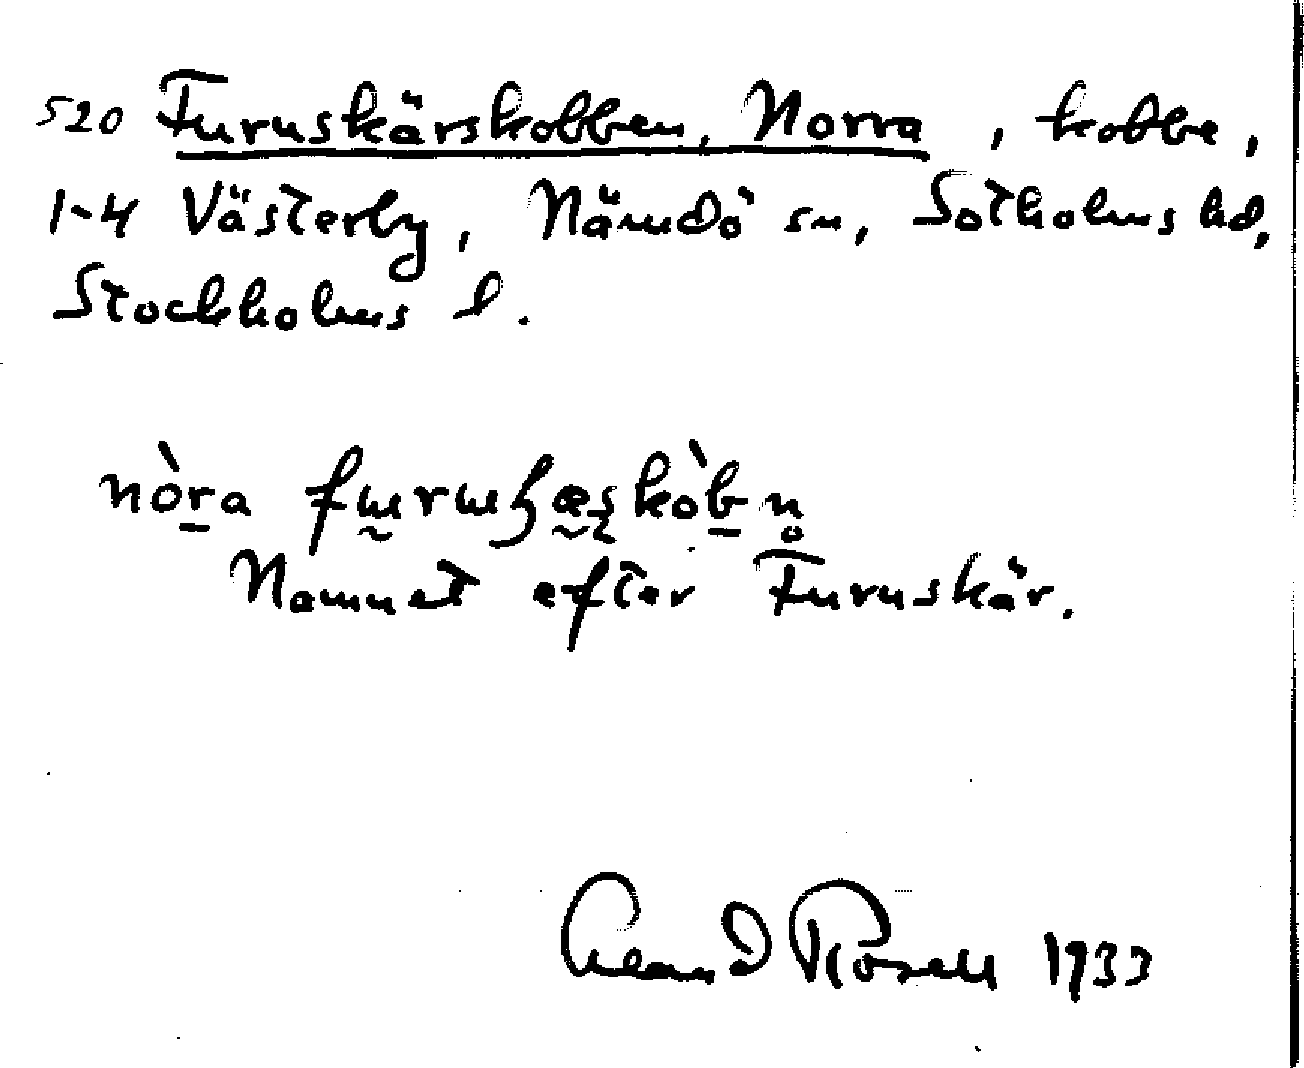 520 Furuskärskobben, Norra, kobbe,
1-4 Västerby, Nämdö sn, Sotholms hd,
Stockholms l.
nòra
Namnet efter Furuskär.
Rosell 1933